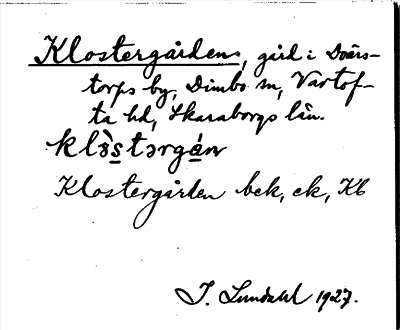 Klostergården, gård i Dvärs-
torps by, Dimbo sn, Vartof-
ta hd, Skaraborgs län.
klɔ̀stərgán
Klostergården bek, ek, Kb
I. Lundahl 1927.